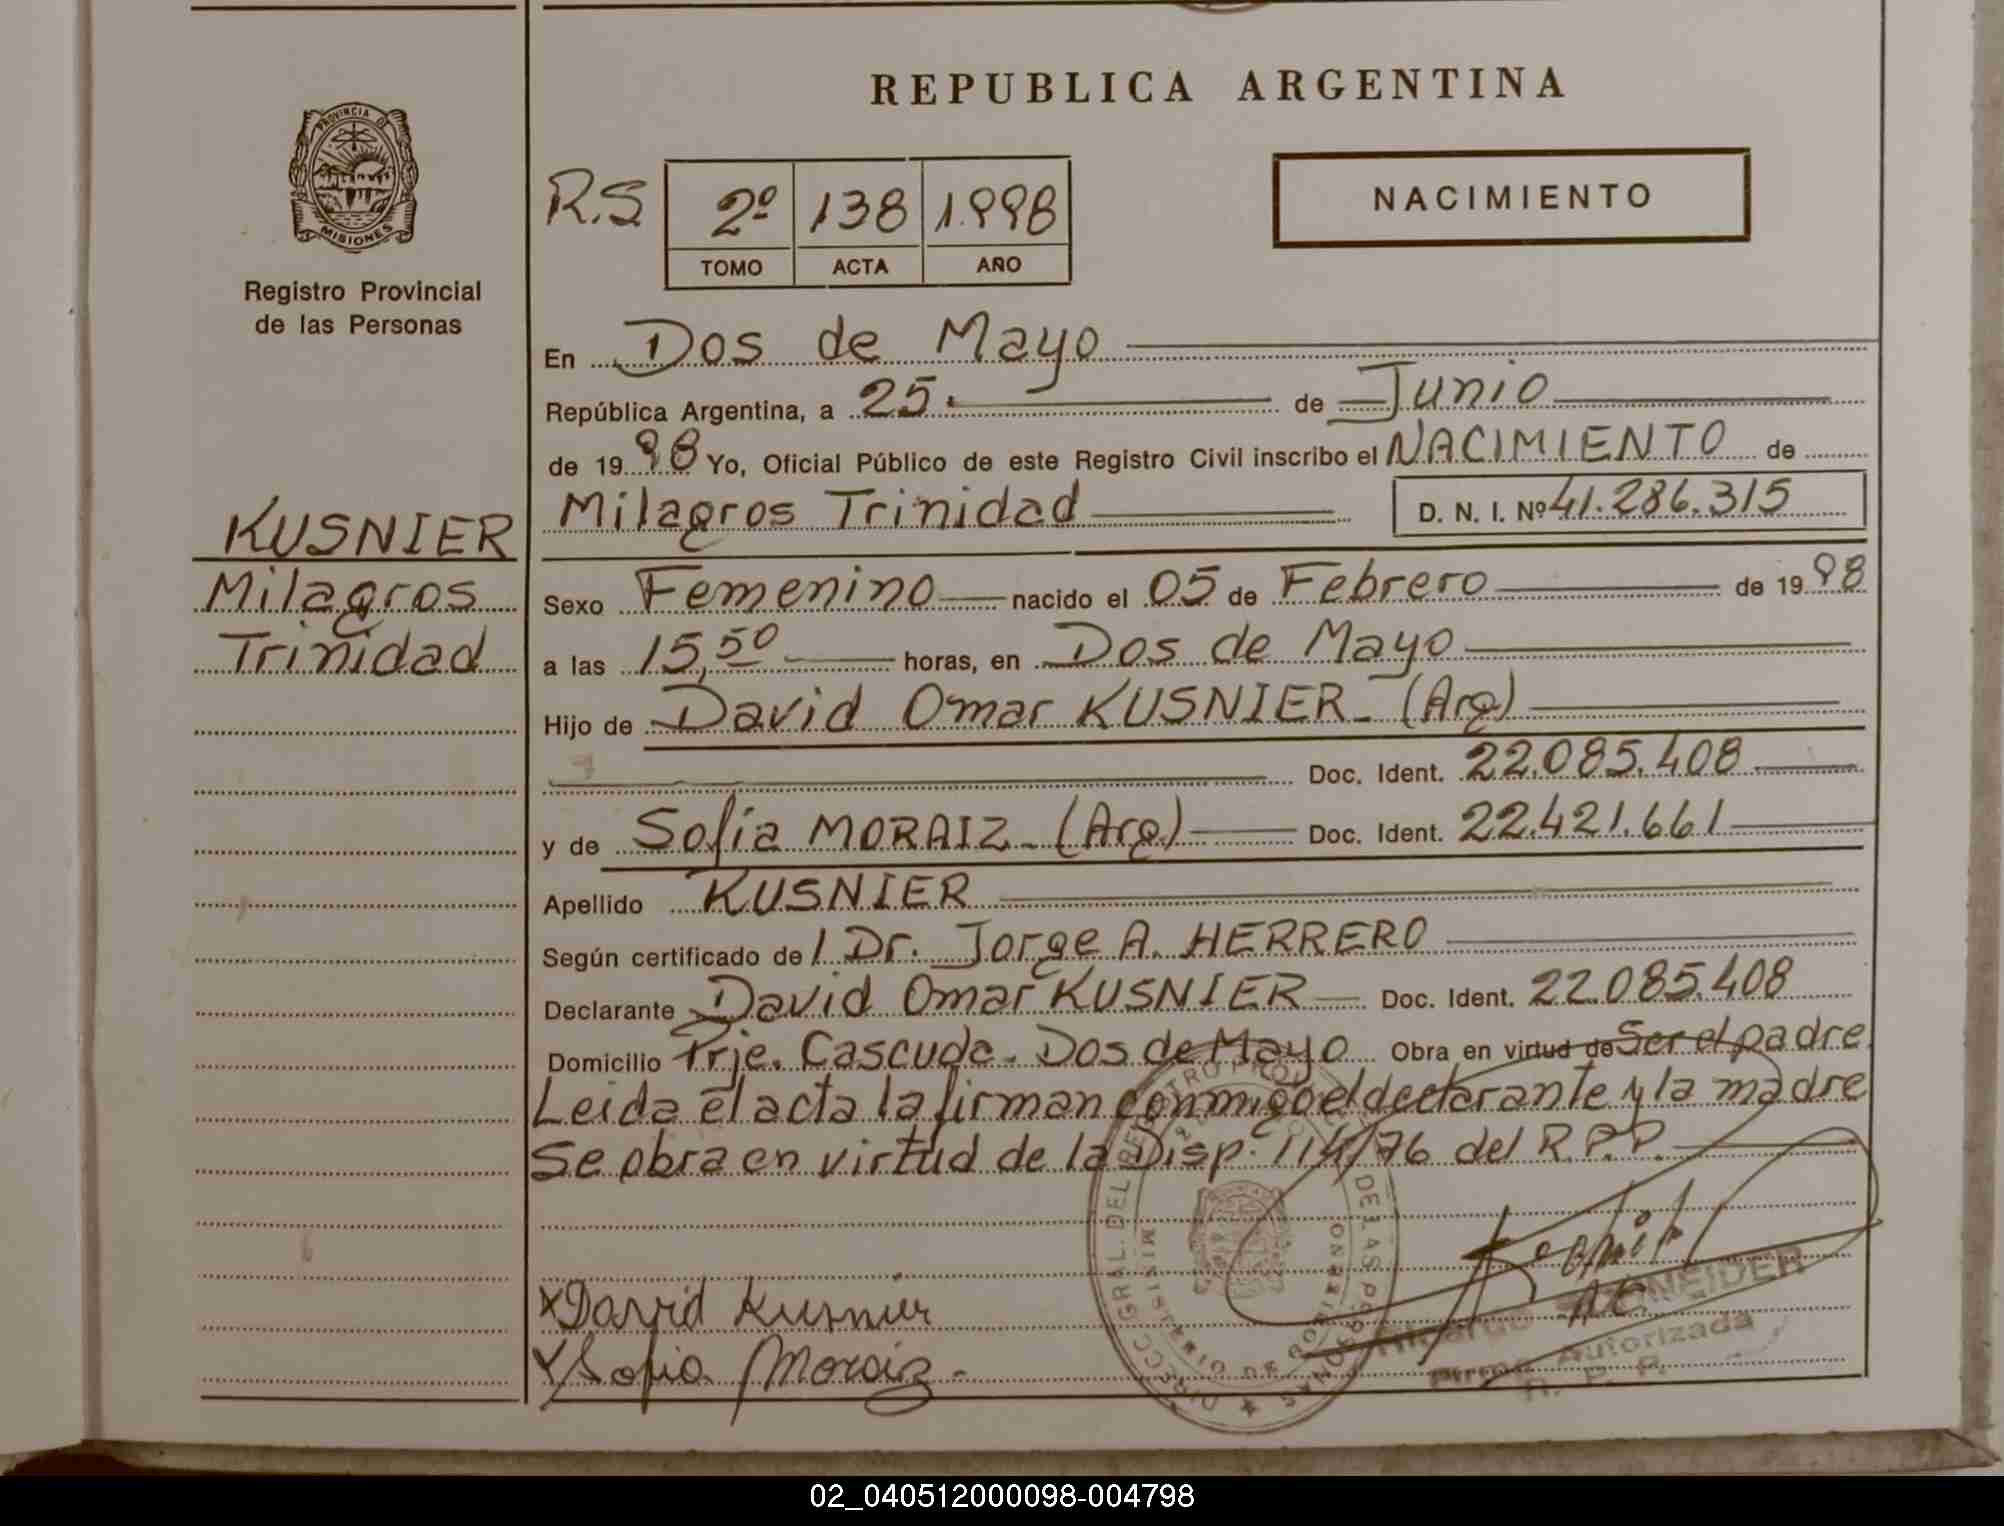 REPUBLICA ARGENTINA
PROVINCIA D
MISIONES
Registro Provincial
de las Personas
R.S 2º 138 1.998
TOMO ACTA AÑO
NACIMIENTO
En Dos de Mayo
República Argentina, a 25 de Junio
de 1998 Yo, Oficial Público de este Registro Civil inscribo el NACIMIENTO de
KUSNIER
Milagros
Trinidad
Milagros Trinidad D. N. I. Nº 41.286.315
Sexo Femenino nacido el 05 de Febrero de 1998
a las 15,50 horas, en Dos de Mayo
Hijo de David Omar KUSNIER - (Arg)
Doc. Ident. 22.085.408
y de Sofia MORAIZ - (Arg.) Doc. Ident. 22.421.661
Apellido KUSNIER
Según certificado de l Dr. Jorge A. HERRERO
Declarante David Omar KUSNIER Doc. Ident. 22.085.408
Domicilio Prje. Dos de Mayo Obra en virtud de Ser el padre
Leida el acta la firman conmigo el declarante y la madre
Se obra en virtud de la Disp. 114/76 del R.P.P.
x David Kusnier
x Sofia Moraiz.
SCHNEIDER
Firma Autorizada
R. P. P.
02_040512000098-004798